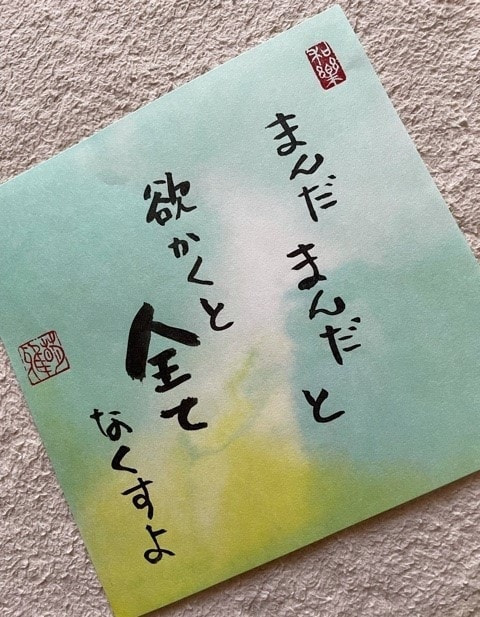 和樂
まんだ まんだ と
欲かくと
全て
なくすよ